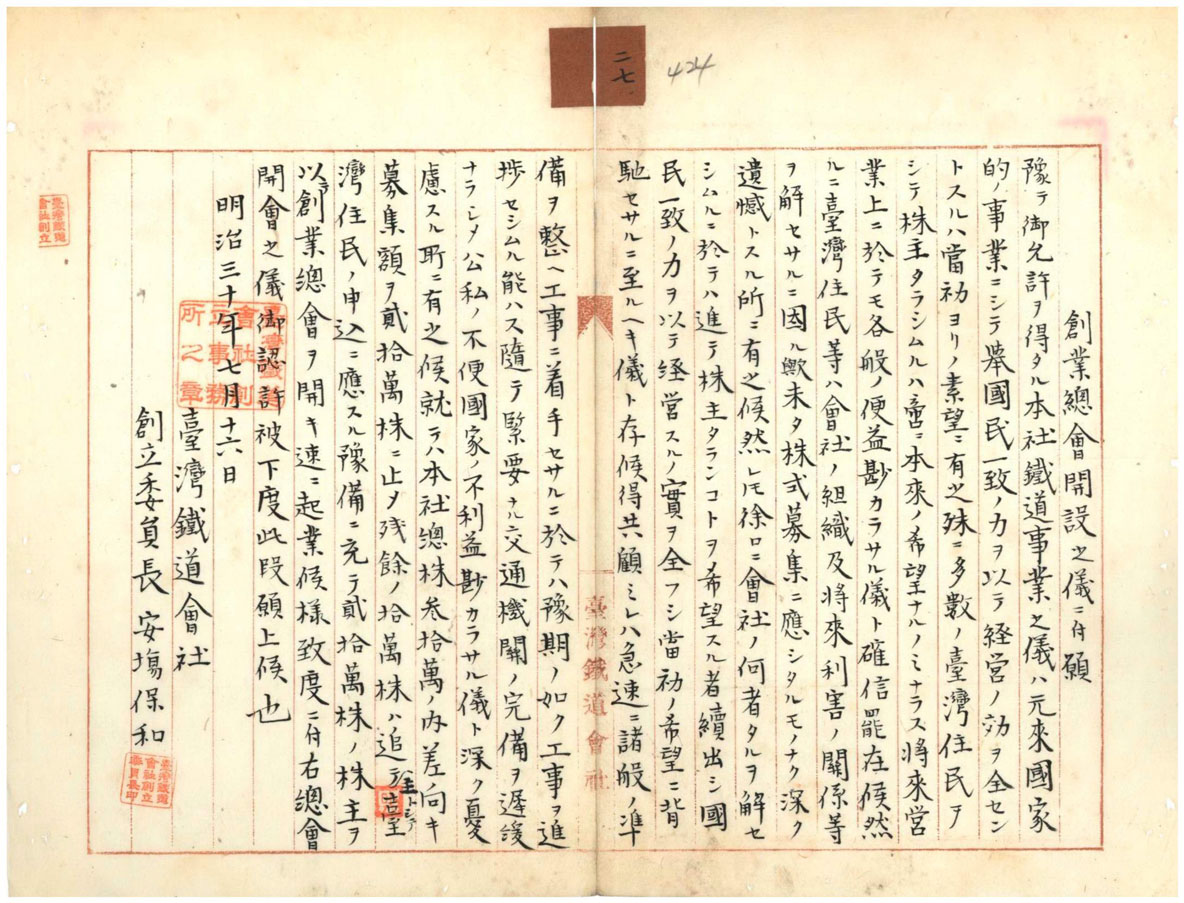 二七、
424
創業總會開設之儀ニ付願
豫テ御允許ヲ得タル本社鐵道事業之儀ハ元來國家
的ノ事業ニシテ舉國民一致ノ力ヲ以テ経営ノ効ヲ全セン
トスルハ當初ヨリノ素望ニ有之殊ニ多數ノ臺灣住民ヲ
シテ株主タラシムルハ啻ニ本來ノ希望ナルノミナラス將來営
業上ニ於テモ各般ノ便益尠カラサル儀ト確信罷在候然
ルニ臺灣住民等ハ會社ノ組織及將來利害ノ關係等
ヲ解セサルニ因ル歟未タ株式募集ニ應シタルモノナク深ク
遺憾トスル所ニ有之候然レモ徐ロニ會社ノ何者タルヲ解セ
シムルニ於テハ進テ株主タランコトヲ希望スル者續出シ國
民一致ノ力ヲ以テ経営スルノ實ヲ全フシ當初ノ希望ニ背
馳セサルニ至ルヘキ儀ト存候得共顧ミレハ急速ニ諸般ノ準
臺灣鐵道會社
備ヲ整ヘ工事ニ着手セサルニ於テハ豫期ノ如ク工事ヲ進
捗セシムル能ハス隨テ緊要ナル交通機關ノ完備ヲ遅緩
ナラシメ公私ノ不便國家ノ不利益尠カラサル儀ト深ク憂
慮スル所ニ有之候就テハ本社總株叁拾萬ノ内差向キ
募集額ヲ貳拾萬株ニ止メ残餘ノ拾萬株ハ追テ主トシテ臺
灣住民ノ申込ニ應スル豫備ニ充テ貳拾萬株ノ株主ヲ
以テ創業總會ヲ開キ速ニ起業候様致度ニ付右總會
開會之儀御認許被下度此段願上候也
明治三十年七月十六日
臺灣鐵道會社
創立委員長 安場保和
臺灣鐵道會社創立事務所之章